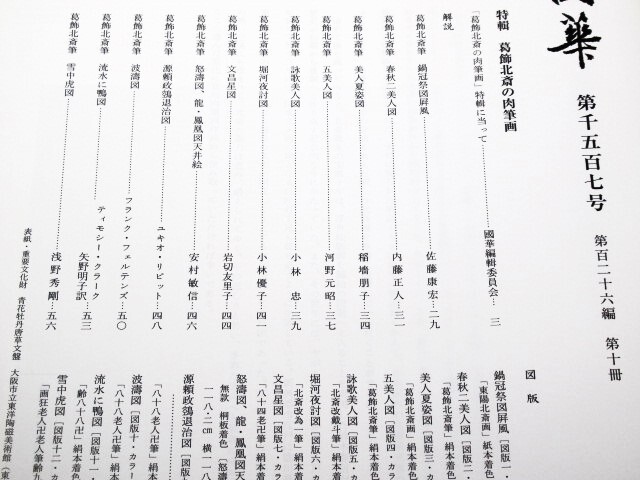 華
第千五百七号
第百二十六編 第十冊
特輯 葛飾北斎の肉筆画
「葛飾北斎の肉筆画」特輯に当って……國華編輯委員会… 三
解説
葛飾北斎筆 鍋冠祭図屏風……佐藤康宏…二九
葛飾北斎筆 春秋二美人図……内藤正人…三一
葛飾北斎筆 美人夏姿図……稲墻朋子…三四
葛飾北斎筆 五美人図……河野元昭…三七
葛飾北斎筆 詠歌美人図……小林 忠…三九
葛飾北斎筆 堀河夜討図……小林優子…四一
葛飾北斎筆 文昌星図……岩切友里子…四四
葛飾北斎筆 怒濤図、龍・鳳凰図天井絵……安村敏信…四六
葛飾北斎筆 源頼政鵺退治図……ユキオ・リピット…四八
葛飾北斎筆 波濤図……フランク・フェルテンズ…五〇
葛飾北斎筆 流水に鴨図……ティモシー・クラーク
矢野明子訳…五三
葛飾北斎筆 雪中虎図……浅野秀剛…五六
表紙・重要文化財 青花牡丹唐草文盤 大阪市立東洋陶磁美術館(東
図版
鍋冠祭図屏風〔図版一・
「東陽北斎画」紙本着色
春秋二美人図〔図版二・
「葛飾北斎筆」絹本着色
美人夏姿図〔図版三・カ
「葛飾北斎筆」絹本着色
五美人図〔図版四・カラ
「葛飾北斎筆」絹本着色
詠歌美人図〔図版五・カ
「北斎改戴斗筆」絹本着
堀河夜討図〔図版六・カ
「北斎改為一筆」絹本着
文昌星図〔図版七・カラ
「八十四老卍筆」絹本着
怒濤図、龍・鳳凰図天
無款 桐板着色〔怒濤
一一八・二㎝ 横一一八
源頼政鵺退治図〔図版
「八十八老人卍筆」絹本
波濤図〔図版十・カラー
「八十八老卍筆」絹本着
流水に鴨図〔図版十一・
「齢八十八卍」絹本着色
雪中虎図〔図版十二・カ
「画狂老人卍老人筆齢九